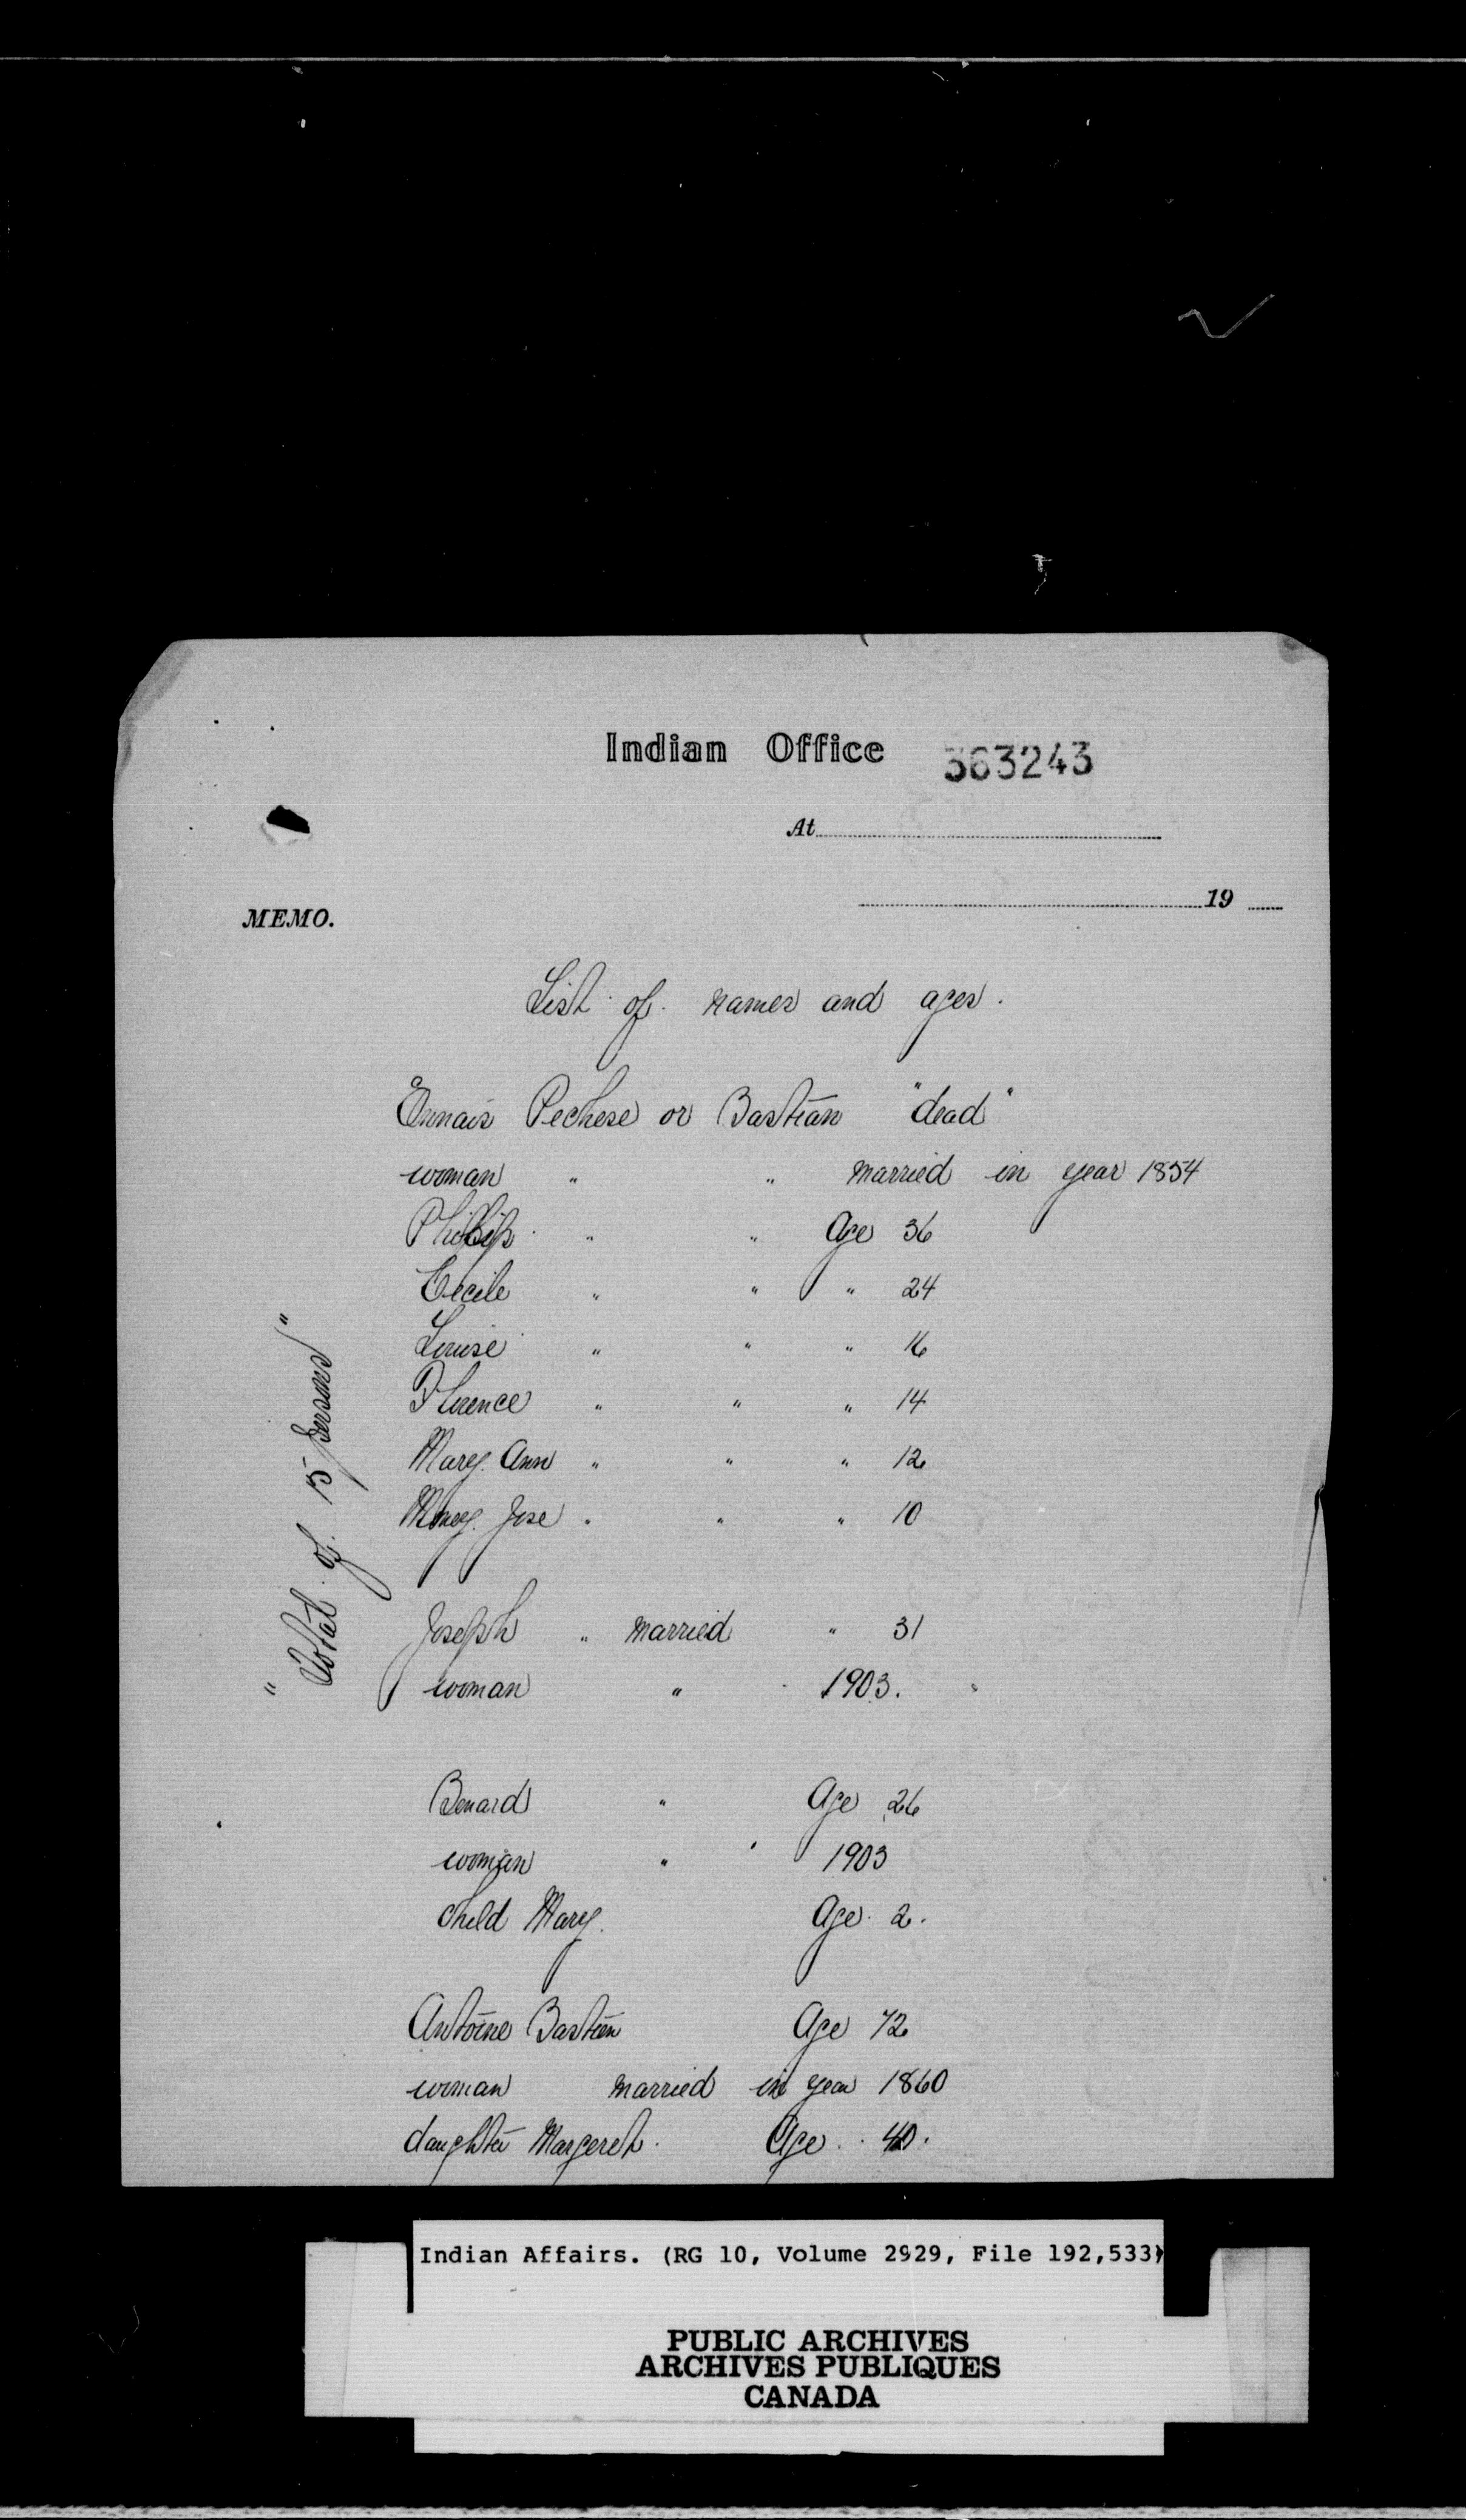 Indian Office 363243
At
19
MEMO.
List of names and ages.
Ennais Pechese or Bastian "dead"
woman " " married in year 1854
Phillip " " Age 36
Cecile " " " 24
Louise " " " 16
Florence " " " 14
Mary Ann " " " 12
Mary Jose " " " 10
Joseph " married " 31
woman " 1903.
Benard " Age 26
woman " 1903
child Mary. Age 2.
Antoine Bastien Age 72
woman married in year 1860
daughter Margeret. Age 40.
"Total of 15 persons"
Indian Affairs. (RG 10, Volume 2929, File 192,533)
PUBLIC ARCHIVES
ARCHIVES PUBLIQUES
CANADA